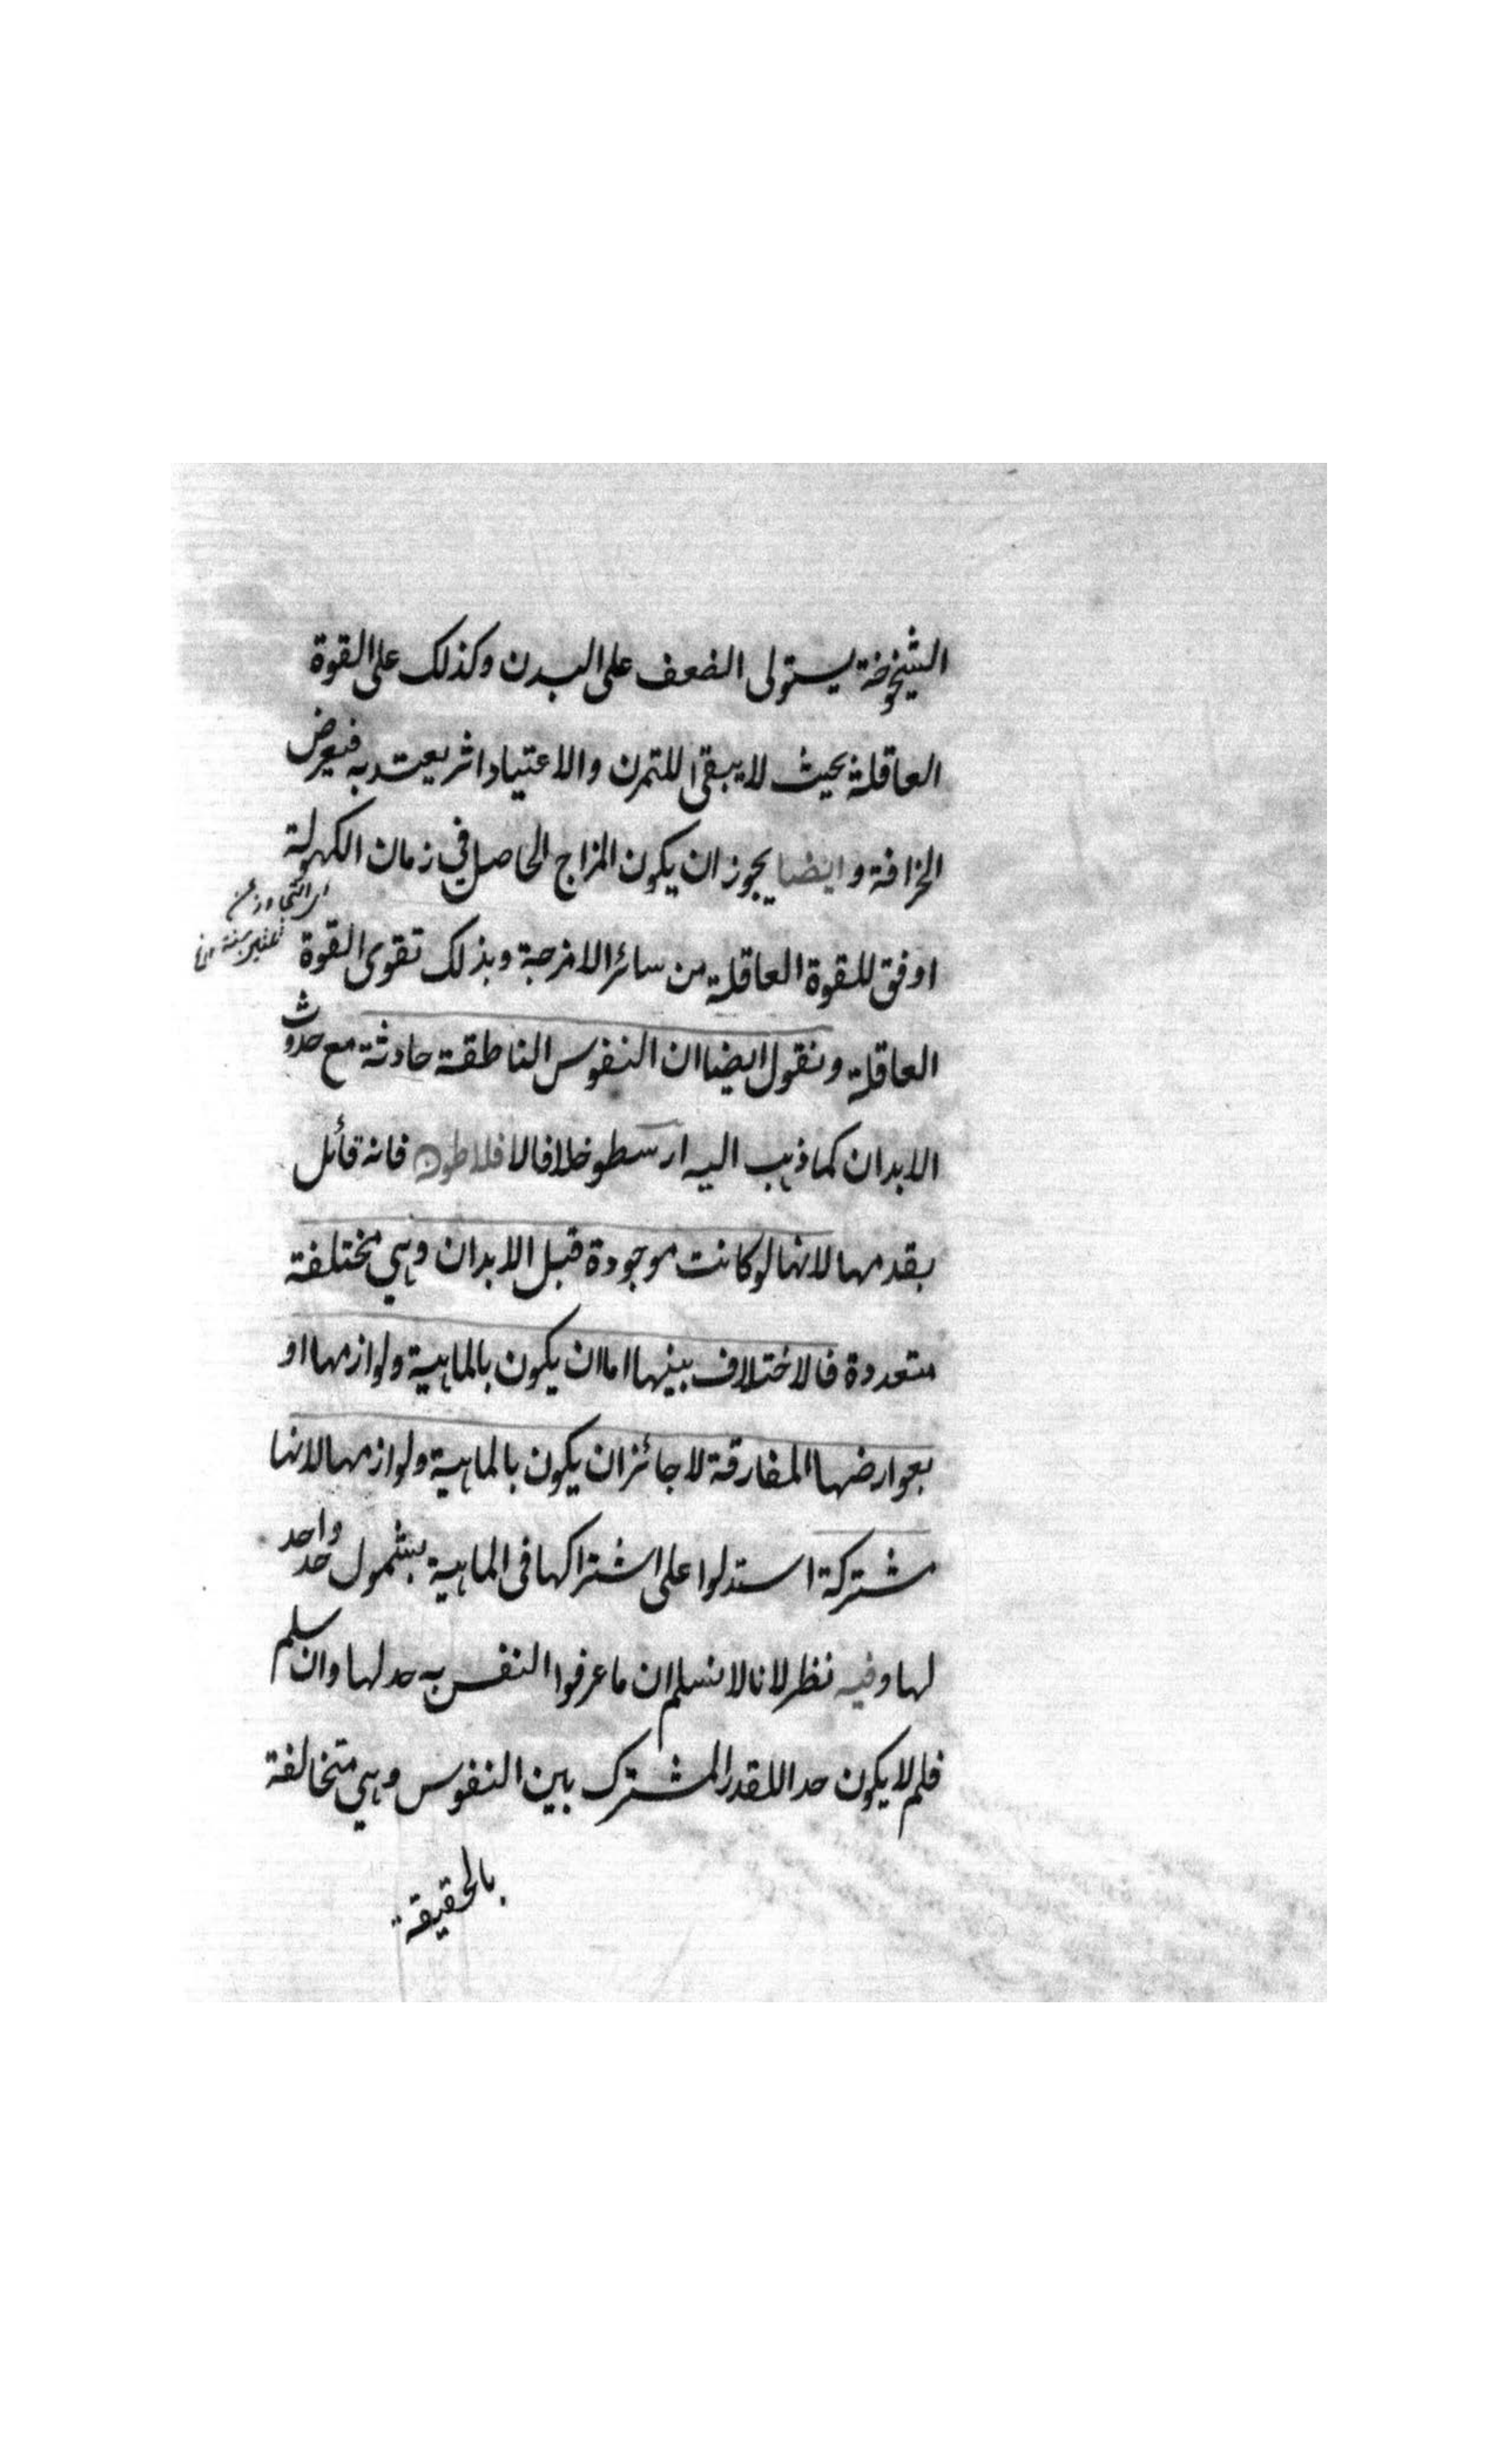 الشيخوخة يستولى الضعف على البدن وكذلك على القوة
العاقلة بحيث لا يبقى للتمرن والاعتياد اثر يعتد به فيعرض
الخرافة وايضا يجوز ان يكون المزاج الحاصل في زمان الكهولة
اوفق للقوة العاقلة من سائر الامزجة وبذلك تقوى القوة
العاقلة ونقول ايضا ان النفوس الناطقة حادثة مع حدوث
الابدان كما ذهب اليه ارسطو خلافا لافلاطون فانه قائل
بقدمها لانها لو كانت موجودة قبل الابدان وهي مختلفة
متعددة فالاختلاف بينها اما ان يكون بالماهية ولوازمها او
بعوارضها المفارقة لا جائز ان يكون بالماهية ولوازمها لانها
مشتركة استدلوا على اشتراكها في الماهية بشمول حد واحد
لها وفيه نظر لانا لا نسلم ان ما عرفوا النفس به حد لها وان سلم
فلم لا يكون حدا للقدر المشترك بين النفوس وهي متخالفة
بالحقيقة